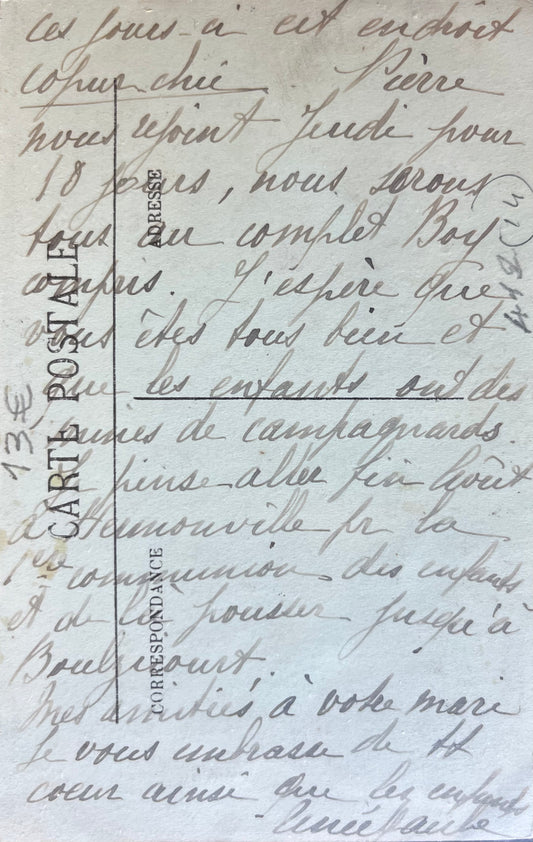 ces jours-ci cet endroit
copurchic Pierre
nous rejoint Jeudi pour
18 jours, nous serons
tous au complet Boy
compris. J'espère que
vous êtes tous bien et
que les enfants ont des
mines de campagnards.
Je pense aller fin Août
à Hermonville pr la
1ère communion des enfants
et de là pousser jusqu'à
Boulzicourt.
Mes amitiés à votre mari
Je vous embrasse de tt
coeur ainsi que les enfants
CARTE POSTALE
CORRESPONDANCE
ADRESSE
13€